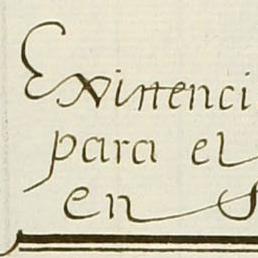 Existenci
para el
en S